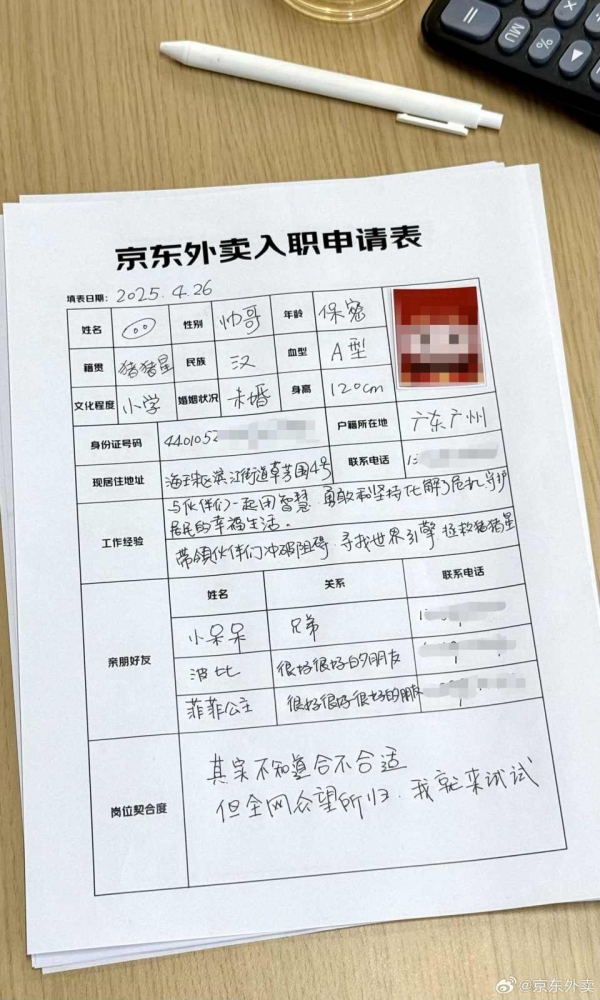 MU
%
京东外卖入职申请表
填表日期: 2025.4.26
姓名 性别 帅哥 年龄 保密
籍贯 猪猪星 民族 汉 血型 A型
文化程度 小学 婚姻状况 未婚 身高 120cm
身份证号码 4401052 户籍所在地 广东广州
现居住地址 海珠区滨江街道草芳围4号 联系电话 1
工作经验
与伙伴们一起用智慧、勇敢和坚持化解了危机,守护
居民的幸福生活。
带领伙伴们冲破阻碍,寻找世界引擎,拯救猪猪星
亲朋好友
姓名 关系 联系电话
小呆呆 兄弟 1
波比 很好很好的朋友
菲菲公主 很好很好很好的朋友
岗位契合度
其实不知道合不合适
但全网众望所归,我就来试试
@京东外卖